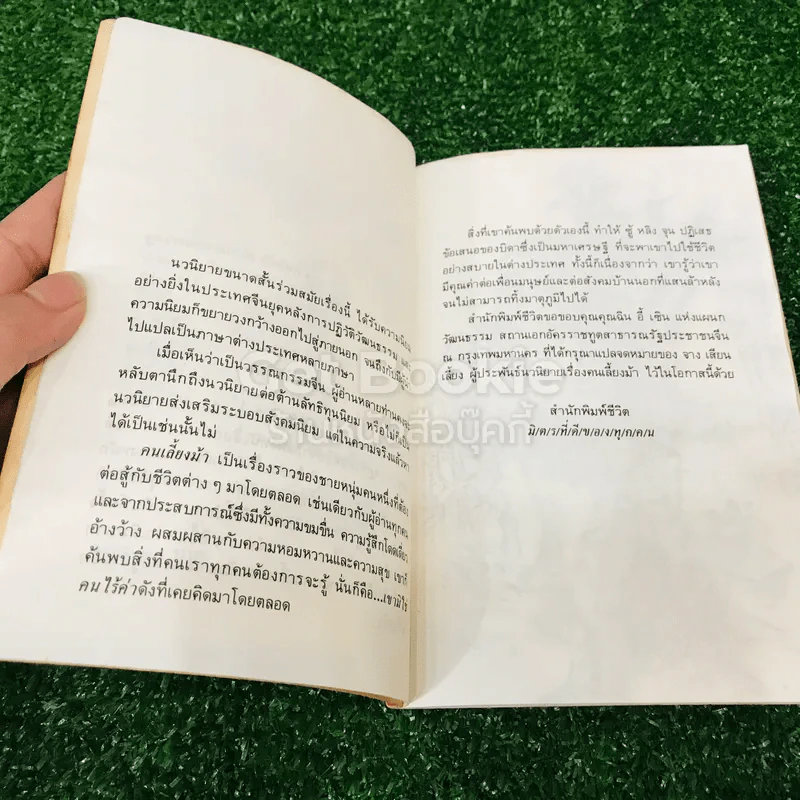 นวนิยายขนาดสั้นร่วมสมัยเรื่องนี้ ได้รับความนิยม
อย่างยิ่งในประเทศจีนยุคหลังการปฏิวัติวัฒนธรรม และ
ความนิยมก็ขยายวงกว้างออกไปสู่ภายนอก จนถึงกับมีผู้นำ
ไปแปลเป็นภาษาต่างประเทศหลายภาษา
เมื่อเห็นว่าเป็นวรรณกรรมจีน ผู้อ่านหลายท่านคงจะ
หลับตานึกถึงนวนิยายต่อต้านลัทธิทุนนิยม หรือไม่ก็เป็น
นวนิยายส่งเสริมระบอบสังคมนิยม แต่ในความจริงแล้วหา
ได้เป็นเช่นนั้นไม่
คนเลี้ยงม้า เป็นเรื่องราวของชายหนุ่มคนหนึ่งที่ต้อง
ต่อสู้กับชีวิตต่าง ๆ มาโดยตลอด เช่นเดียวกับผู้อ่านทุกคน
และจากประสบการณ์ซึ่งมีทั้งความขมขื่น ความรู้สึกโดดเดี่ยว
อ้างว้าง ผสมผสานกับความหอมหวานและความสุข เขาก็
ค้นพบสิ่งที่คนเราทุกคนต้องการจะรู้ นั่นก็คือ...เขามิใช่
คนไร้ค่าดังที่เคยคิดมาโดยตลอด
สิ่งที่เขาค้นพบด้วยตัวเองนี้ ทำให้ ซู้ หลิง จุน ปฏิเสธ
ข้อเสนอของบิดาซึ่งเป็นมหาเศรษฐี ที่จะพาเขาไปใช้ชีวิต
อย่างสบายในต่างประเทศ ทั้งนี้ก็เนื่องจากว่า เขารู้ว่าเขา
มีคุณค่าต่อเพื่อนมนุษย์และต่อสังคมบ้านนอกที่แสนล้าหลัง
จนไม่สามารถทิ้งมาตุภูมิไปได้
สำนักพิมพ์ชีวิตขอขอบคุณคุณฉิน อี้ เซิน แห่งแผนก
วัฒนธรรม สถานเอกอัครราชทูตสาธารณรัฐประชาชนจีน
ณ กรุงเทพมหานคร ที่ได้กรุณาแปลจดหมายของ จาง เสียน
เลี้ยง ผู้ประพันธ์นวนิยายเรื่องคนเลี้ยงม้า ไว้ในโอกาสนี้ด้วย
สำนักพิมพ์ชีวิต
มิ/ต/ร/ที่/ดี/ข/อ/ง/ทุ/ก/ค/น
Get Bookie
ร้านหนังสือบุ๊คกี้